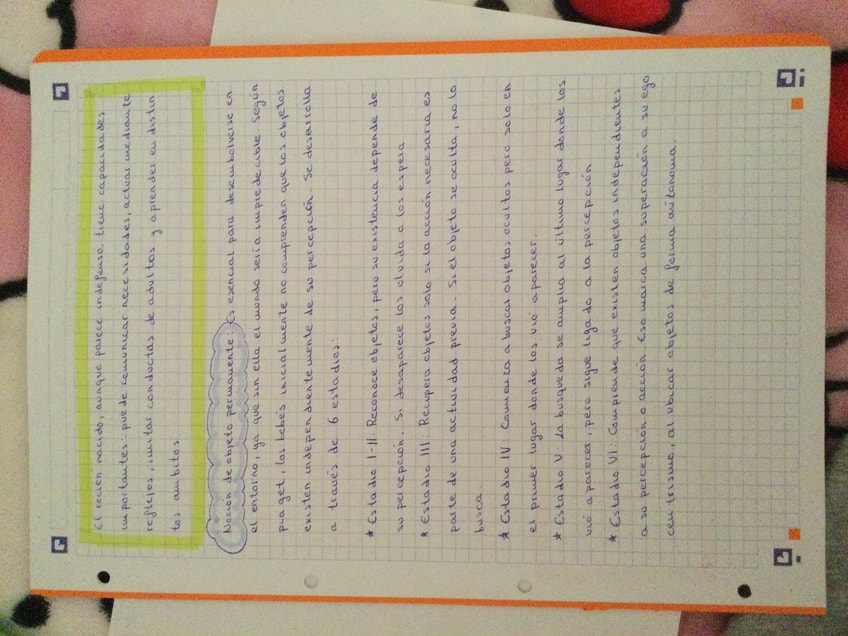 El recién nacido, aunque parece indefenso, tiene capacidades
importantes: puede comunicar necesidades, actuar mediante
reflejos, imitar conductas de adultos y aprender en distin
tos ambitos
Noción de objeto permanente: Es esencial para desembolverse en
el entorno, ya que sin ella el mundo sería impredecible. Según
piaget, los bebés inicialmente no comprenden que los objetos
existen independientemente de su percepción. Se desarrolla
a través de 6 estadios:
* Estadio I-II: Reconoce objetos, pero su existencia depende de
su percepción. Si desaparece los olvida o los espera
* Estadio III: Recupera objetos solo si la acción necesaria es
parte de una actividad previa. Si el objeto se oculta, no lo
busca
* Estadio IV: Comienza a buscar objetos ocultos pero solo en
el primer lugar donde los vio aparecer.
* Estadio V: La busqueda se amplia al último lugar donde los
vió aparecer, pero sigue ligado a la percepción
* Estadio VI: Comprende que existen objetos independientes
a su percepción o acción. Eso marca una superación a su ego
centrismo, al ubicar objetos de forma autónoma.